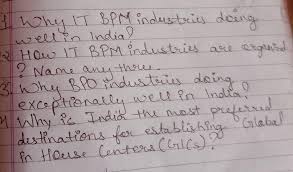 1. Why IT BPM industries doing
well in India?
2. How IT BPM industries are
? Name any three.
3. Why BPO industries doing
exceptionally well in India?
4 Why is India the most preferred
destinations for establishing Global
in House Centers (GICs)?